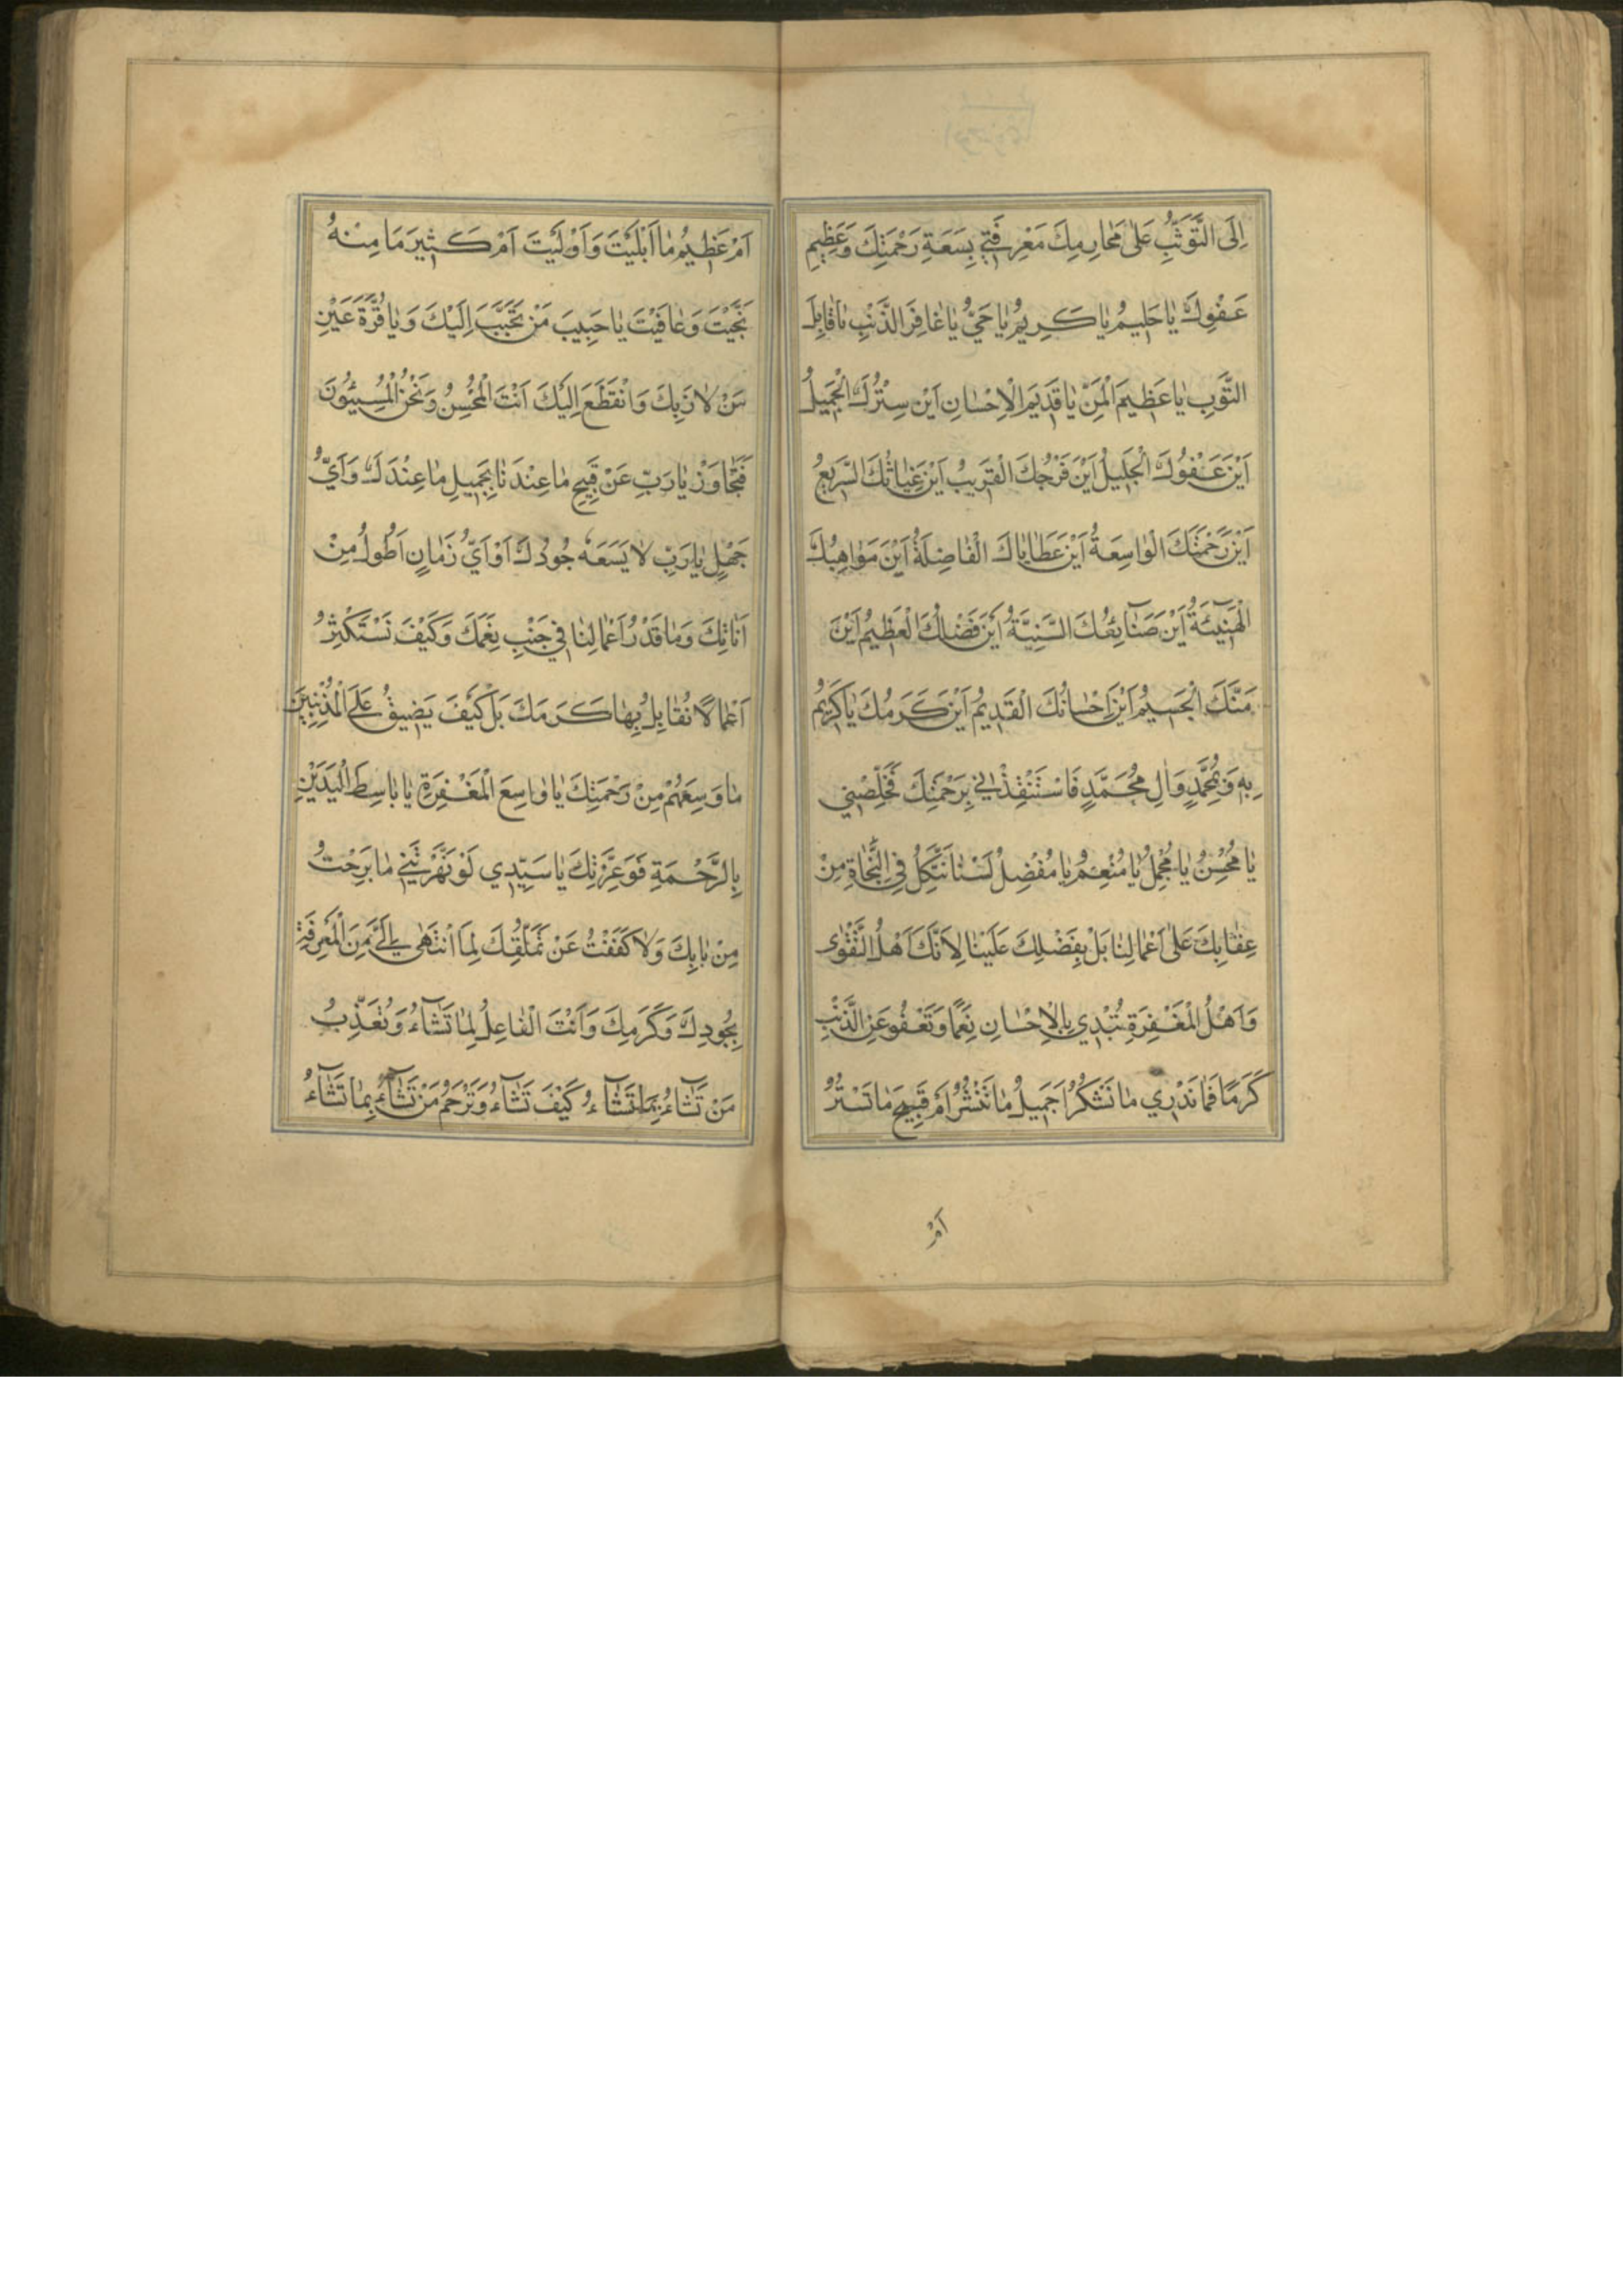 اِلَى التَّوَثُّبِ عَلىٰ مَحارِمِكَ مَعْرِفَتي بِسَعَةِ رَحْمَتِكَ وَعَظِيمِ
عَفْوِكَ يٰا حَلِيمُ يٰا كَرِيمُ يٰا حَيُّ يٰا غٰافِرَ الذَّنْبِ يٰا قٰابِلَ
التَّوْبِ يٰا عَظِيمَ الْمَنِّ يٰا قَدِيمَ الْاِحْسٰانِ اَيْنَ سِتْرُكَ الْجَمِيلُ
اَيْنَ عَفْوُكَ الْجَلِيلُ اَيْنَ فَرَجُكَ الْقَرِيبُ اَيْنَ غِيٰاثُكَ السَّرِيعُ
اَيْنَ رَحْمَتُكَ الْوٰاسِعَةُ اَيْنَ عَطٰايٰاكَ الْفٰاضِلَةُ اَيْنَ مَوٰاهِبُكَ
الْهَنِيئَةُ اَيْنَ صَنٰائِعُكَ السَّنِيَّةُ اَيْنَ فَضْلُكَ الْعَظِيمُ اَيْنَ
مَنُّكَ الْجَسِيمُ اَيْنَ اِحْسٰانُكَ الْقَدِيمُ اَيْنَ كَرَمُكَ يٰا كَرِيمُ
بِهِ وَبِمُحَمَّدٍ وَاٰلِ مُحَمَّدٍ فَاسْتَنْقِذْنِي بِرَحْمَتِكَ فَخَلِّصْنِي
يٰا مُحْسِنُ يٰا مُجْمِلُ يٰا مُنْعِمُ يٰا مُفْضِلُ لَسْنٰا نَتَّكِلُ فِي النَّجٰاةِ مِنْ
عِقٰابِكَ عَلىٰ اَعْمٰالِنٰا بَلْ بِفَضْلِكَ عَلَيْنٰا لِاَنَّكَ اَهْلُ التَّقْوٰى
وَاَهْلُ الْمَغْفِرَةِ تُبْدِي بِالْاِحْسٰانِ نِعَمًا وَتَعْفُو عَنِ الذَّنْبِ
كَرَمًا فَمٰا نَدْرِي مٰا نَشْكُرُ اَجَمِيلُ مٰا تَنْشُرُ اَمْ قَبِيحَ مٰا تَسْتُرُ
اَمْ
اَمْ عَظِيمُ مٰا اَبْلَيْتَ وَاَوْلَيْتَ اَمْ كَثِيرَ مَا مِنْهُ
نَجَّيْتَ وَعٰافَيْتَ يٰا حَبِيبَ مَنْ تَحَبَّبَ اِلَيْكَ وَيٰا قُرَّةَ عَيْنِ
مَنْ لٰاذَ بِكَ وَانْقَطَعَ اِلَيْكَ اَنْتَ الْمُحْسِنُ وَنَحْنُ الْمُسِيئُونَ
فَتَجٰاوَزْ يٰا رَبِّ عَنْ قَبِيحِ مٰا عِنْدَنٰا بِجَمِيلِ مٰا عِنْدَكَ وَاَيُّ
جَهْلٍ يٰا رَبِّ لٰا يَسَعَهُ جُودُكَ اَوْ اَيُّ زَمٰانٍ اَطُولُ مِنْ
اَنٰاتِكَ وَمٰا قَدْرُ اَعْمٰالِنٰا فِي جَنْبِ نِعَمِكَ وَكَيْفَ نَسْتَكْثِرُ
اَعْمٰالًا نُقٰابِلُ بِهٰا كَرَمَكَ بَلْ كَيْفَ يَضِيقُ عَلَى الْمُذْنِبِينَ
مٰا وَسِعَهُمْ مِنْ رَحْمَتِكَ يٰا وٰاسِعَ الْمَغْفِرَةِ يٰا بٰاسِطَ الْيَدَيْنِ
بِالرَّحْمَةِ فَوَعِزَّتِكَ يٰا سَيِّدِي لَوْ نَهَرْتَنِي مٰا بَرِحْتُ
مِنْ بٰابِكَ وَلٰا كَفَفْتُ عَنْ تَمَلُّقِكَ لِمَا انْتَهىٰ اِلَيَّ مِنَ الْمَعْرِفَةِ
بِجُودِكَ وَكَرَمِكَ وَاَنْتَ الْفٰاعِلُ لِمٰا تَشٰاءُ وَتُعَذِّبُ
مَنْ تَشٰاءُ بِمٰا تَشٰاءُ كَيْفَ تَشٰاءُ وَتَرْحَمُ مَنْ تَشٰاءُ بِمٰا تَشٰاءُ